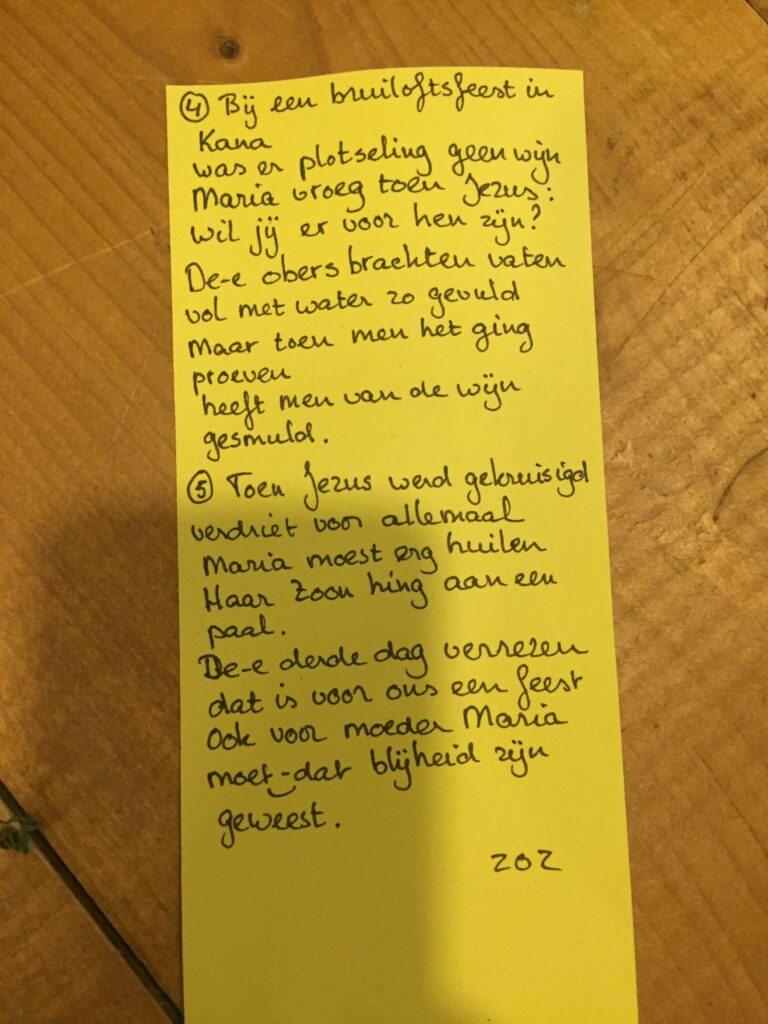 ④ Bij een bruiloftsfeest in
Kana
was er plotseling geen wijn
Maria vroeg toen Jezus:
wil jij er voor hen zijn?
De-e obers brachten vaten
vol met water zo gevuld
Maar toen men het ging
proeven
heeft men van de wijn
gesmuld.
⑤ Toen Jezus werd gekruisigd
verdriet voor allemaal
Maria moest erg huilen
Haar Zoon hing aan een
paal.
De-e derde dag verrezen
dat is voor ons een feest
Ook voor moeder Maria
moet-dat blijheid zijn
geweest.
202